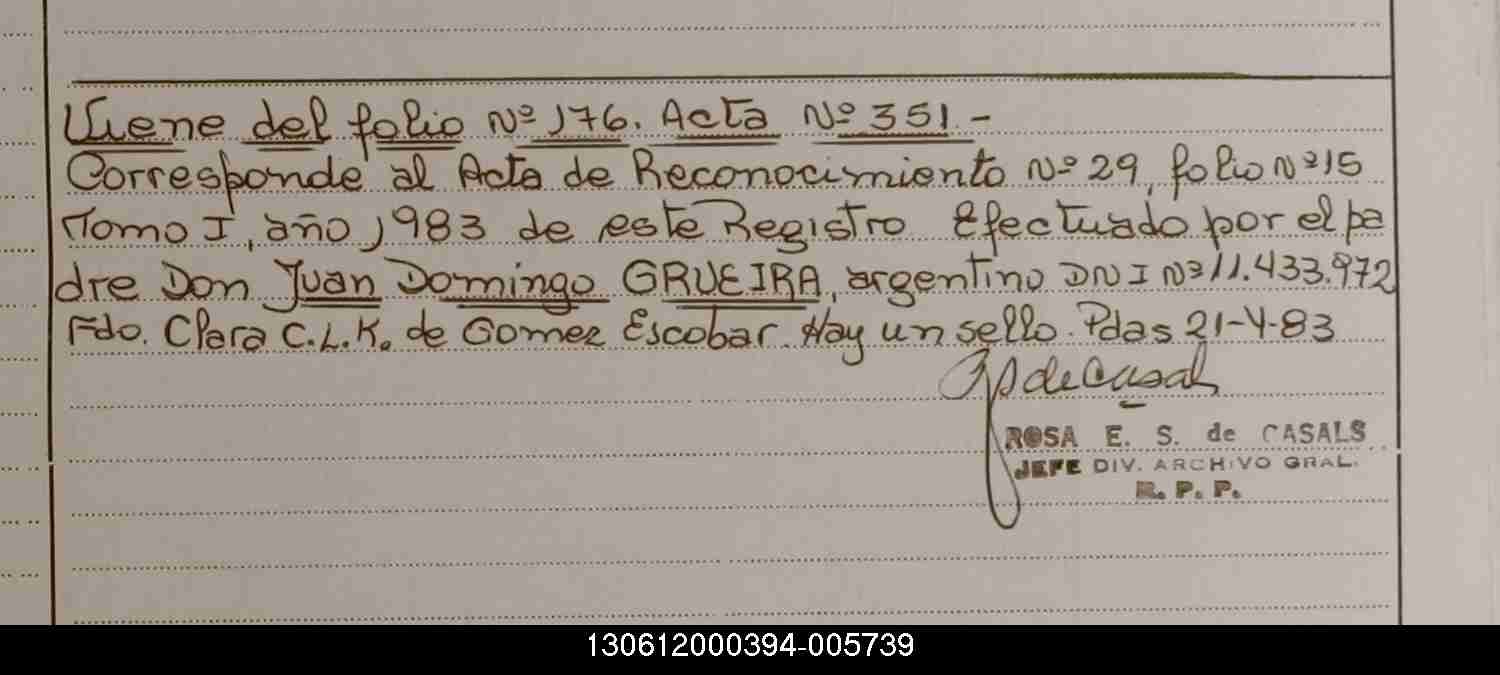 Viene del folio Nº 176. Acta Nº 351.-
Corresponde al Acta de Reconocimiento Nº 29, folio Nº 15
Tomo I, año 1983 de este Registro Efectuado por el pa
dre Don Juan Domingo GRUEIRA, argentino DNI Nº 11.433.972
Fdo. Clara C.L.K. de Gomez Escobar. Hay un sello. Pdas 21-4-83
ROSA E. S. de CASALS
JEFE DIV. ARCHIVO GRAL.
R. P. P.
130612000394-005739